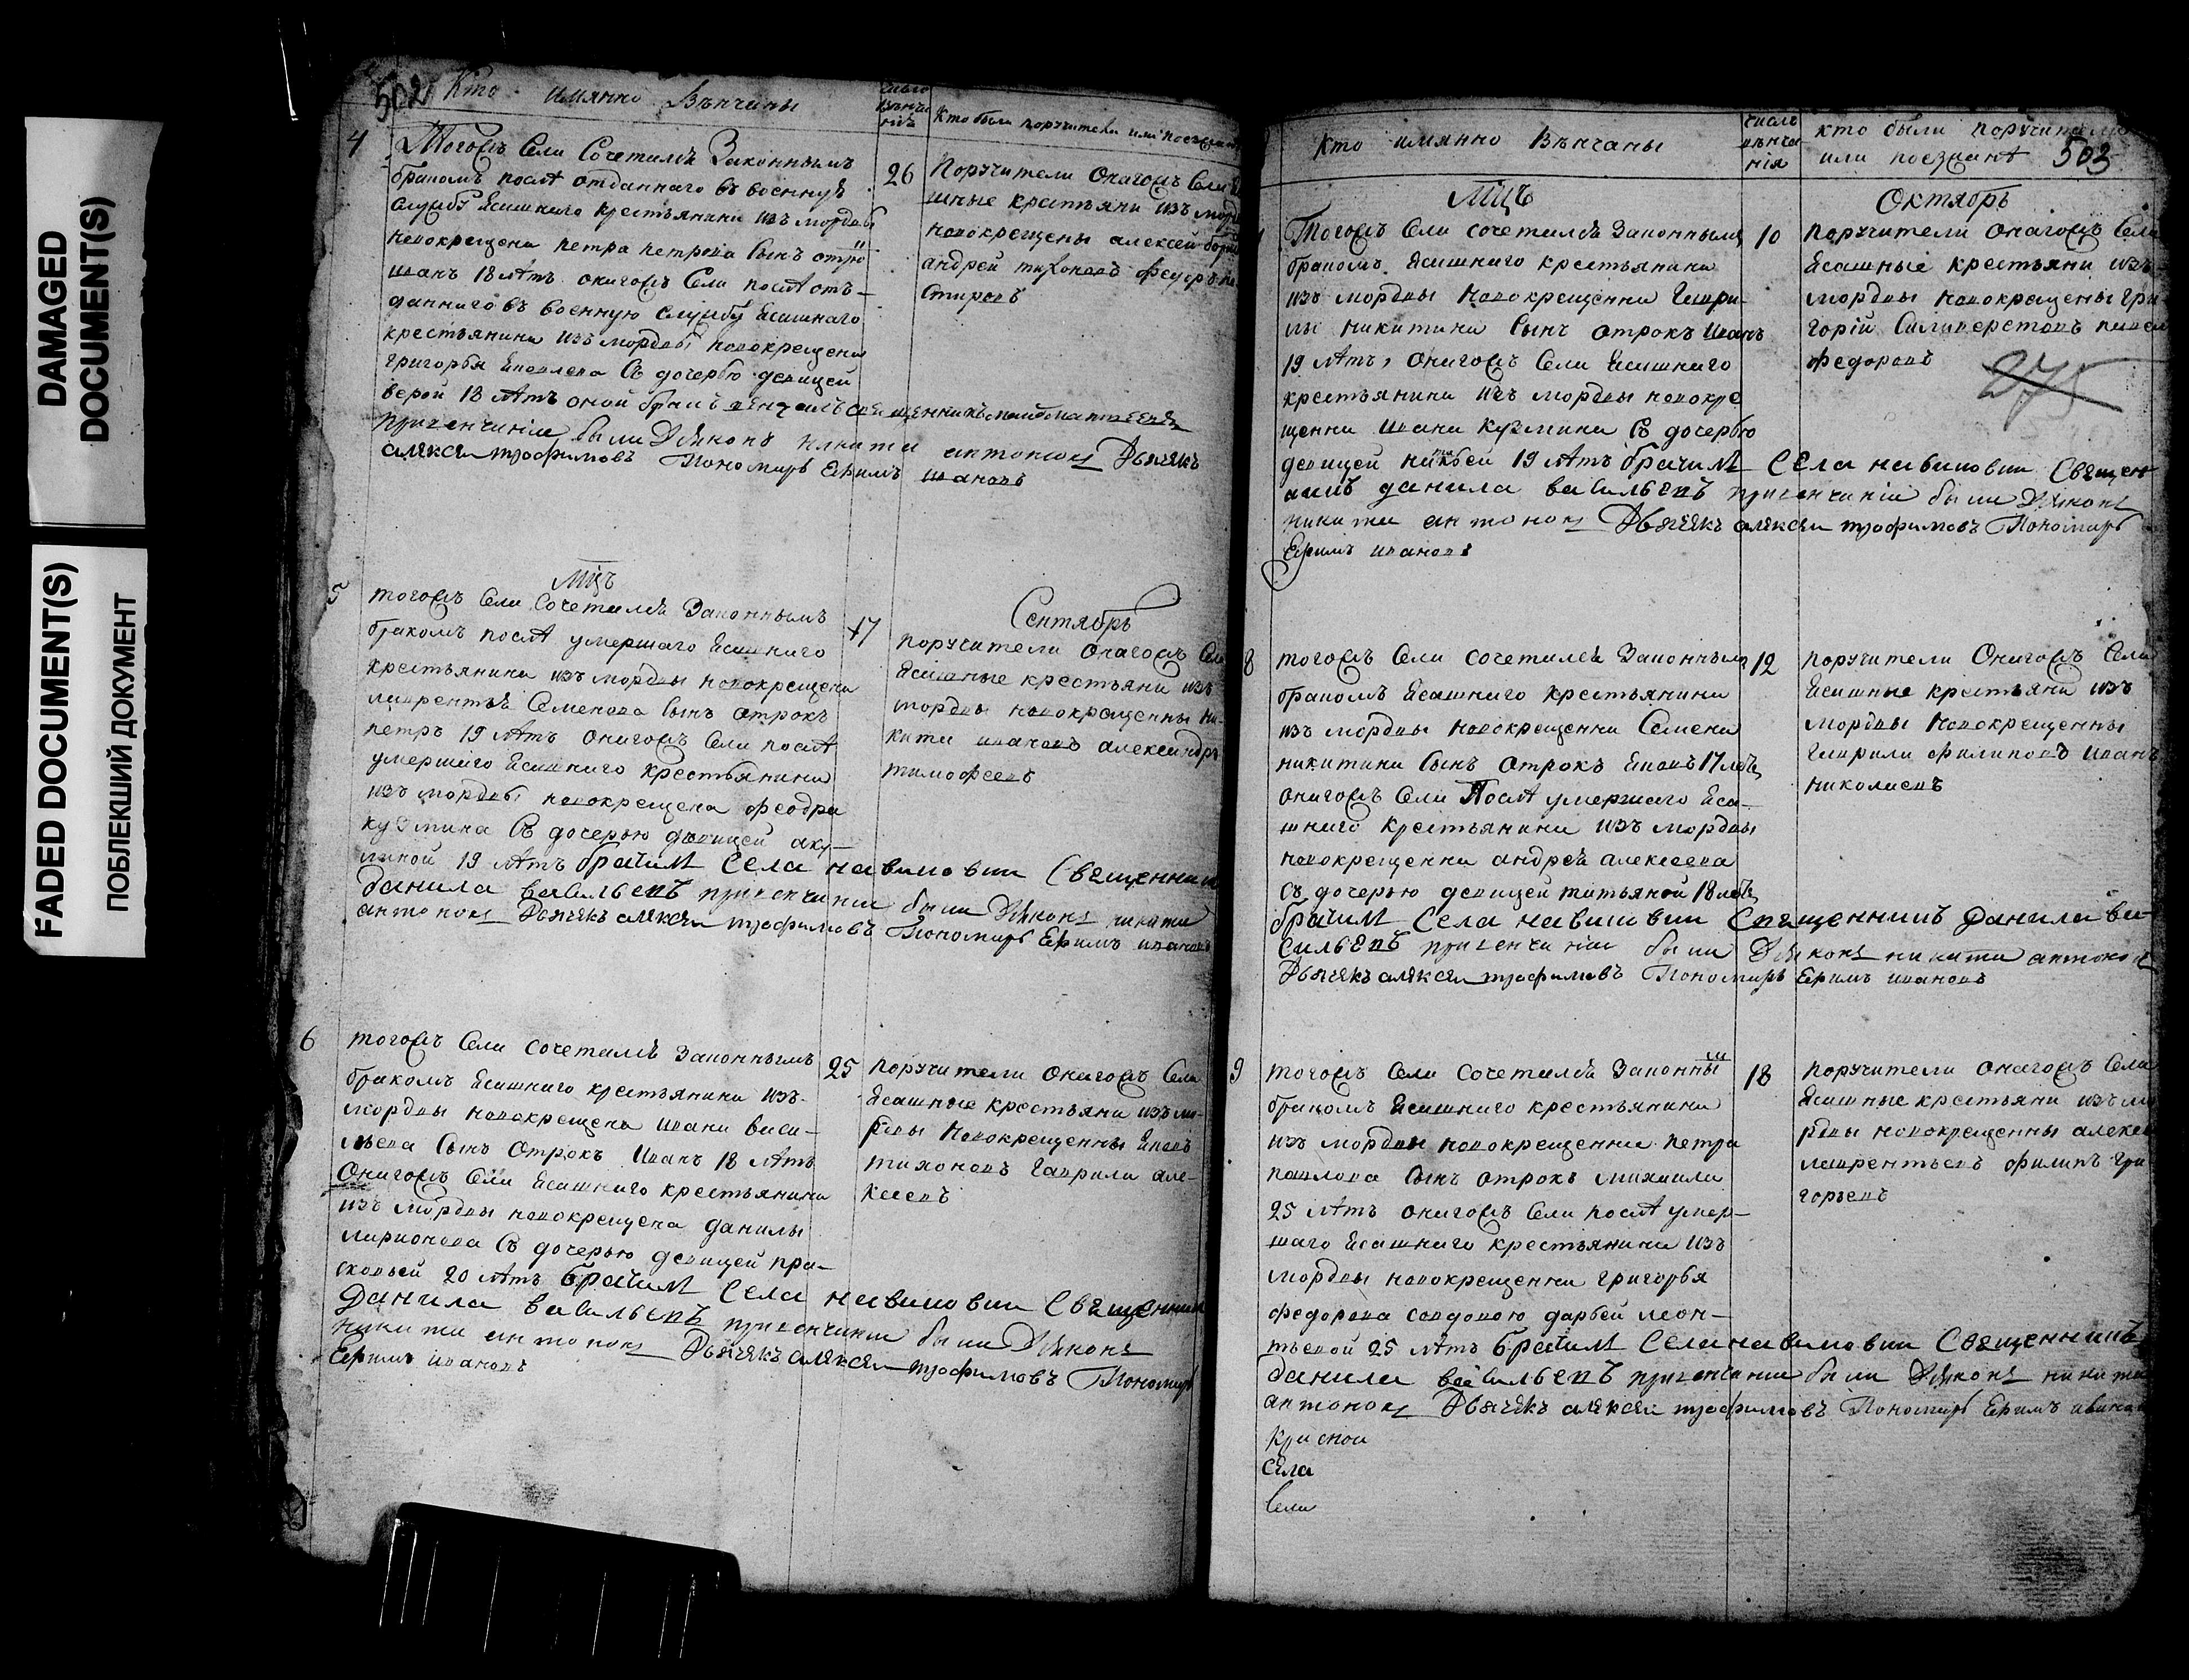 DAMAGED
DOCUMENT(S)
FADED DOCUMENT(S)
ПОБЛЕКШИЙ ДОКУМЕНТ
502
Кто имянно Вѣнчаны
Кто были поручители или
4
Тогожъ Села Сочетался Законнымъ
бракомъ послѣ отданнаго въ военную
службу Ясашнаго крестьянина изъ мордвы
новокрещена петра петрова сынъ отрок
иванъ 18 лѣтъ онагожъ Села послѣ отъ-
даннаго въ военную службу Ясашнаго
крестьянина изъ мордвы новокрещена
григорья яковлева Съ дочерью девицей
верой 18 лѣтъ оной бракъ венчалъ священникъ
при венчаніи были Дьяконъ никита антоновъ Дьячекъ
алексей трофимовъ Пономарь Ефимъ ивановъ
26
Поручители Онагожъ Села
шные крестьяни изъ
новокрещены алексей
андрей тихоновъ федоръ
5
Мцъ
Сентябрь
тогожъ Села Сочетался Законнымъ
бракомъ послѣ умершаго Ясашнаго
крестьянина изъ мордвы новокрещена
лаврентья Семенова сынъ отрокъ
петръ 19 лѣтъ онагожъ Села послѣ
умершаго Ясашнаго крестьянина
изъ мордвы новокрещена феодра
кузмина Съ дочерью девицей аку-
линой 19 лѣтъ бракъ Села Священник
данила васильевъ при венчаніи были Дьяконъ никита
антоновъ Дьячекъ алексей трофимовъ Пономарь Ефимъ ивановъ
17
поручители Онагожъ Села
Ясашные крестьяни изъ
мордвы новокрещенны ни-
кита ивановъ александръ
тимофеевъ
6
тогожъ Села сочетался Законнымъ
бракомъ Ясашнаго крестьянина изъ
мордвы новокрещена ивана васи-
льева сынъ отрокъ иванъ 18 лѣтъ
Онагожъ Села Ясашнаго крестьянина
изъ мордвы новокрещена данилы
ларионова Съ дочерью девицей пра-
сковьей 20 лѣтъ бракъ Села Священник
Данила васильевъ при венчаніи были Дьяконъ
никита антоновъ Дьячекъ алексей трофимовъ Пономарь
Ефимъ ивановъ
25
поручители онагожъ Села
Ясашные крестьяни изъ мо-
рдвы новокрещенны яковъ
тихоновъ гаврила але-
ксеевъ
Кто имянно Вѣнчаны
число
вѣнча
нія
кто были поручители
или поезжанѣ 503
Мцъ
Октябрь
Тогожъ Села сочетался Законнымъ
бракомъ Ясашнаго крестьянина
изъ мордвы новокрещенна гаври-
лы никитина сынъ отрокъ иванъ
19 лѣтъ, онагожъ Села Ясашнаго
крестьянина изъ мордвы новокре
щенна ивана кузмина Съ дочерью
девицей 19 лѣтъ бракъ Села Священ
данила васильевъ при венчаніи были Дьяконъ
никита антоновъ Дьячекъ алексей трофимовъ Пономарь
Ефимъ ивановъ
10
поручители онагожъ Села
Ясашные крестьяни изъ
мордвы новокрещены гри
горій Селиверстовъ павел
федоровъ
275
8
тогожъ Села сочетался Законнымъ
бракомъ Ясашнаго крестьянина
изъ мордвы новокрещенна Семена
никитина сынъ отрокъ яковъ 17 летъ
онагожъ Села Послѣ умершаго Яса-
шнаго крестьянина изъ мордвы
новокрещенна андрея алексеева
съ дочерью девицей татьяной 18 летъ
бракъ Села Священникъ Данила ва-
сильевъ при венчаніи были Дьяконъ никита антоновъ
Дьячекъ алексей трофимовъ Пономарь Ефимъ ивановъ
12
поручители Онагожъ Села
Ясашные крестьяни изъ
мордвы новокрещенны
гаврила филиповъ иванъ
николаевъ
9
тогожъ Села Сочетался Законны
бракомъ Ясашнаго крестьянина
изъ мордвы новокрещенна петра
павлова сынъ отрокъ михаила
25 лѣтъ онагожъ Села послѣ умер-
шаго Ясашнаго крестьянина изъ
мордвы новокрещенна григорья
федорова совдовою дарьей леон-
тьевой 25 лѣтъ бракъ Села Священникъ
данила васильевъ при венчаніи были Дьяконъ никита
антоновъ Дьячекъ алексей трофимовъ Пономарь Ефимъ иванов
18
поручители онагожъ Села
Ясашные крестьяни изъ мо
рдвы новокрещенны алексе
лаврентьевъ филипъ гри
горьевъ
Села
Села